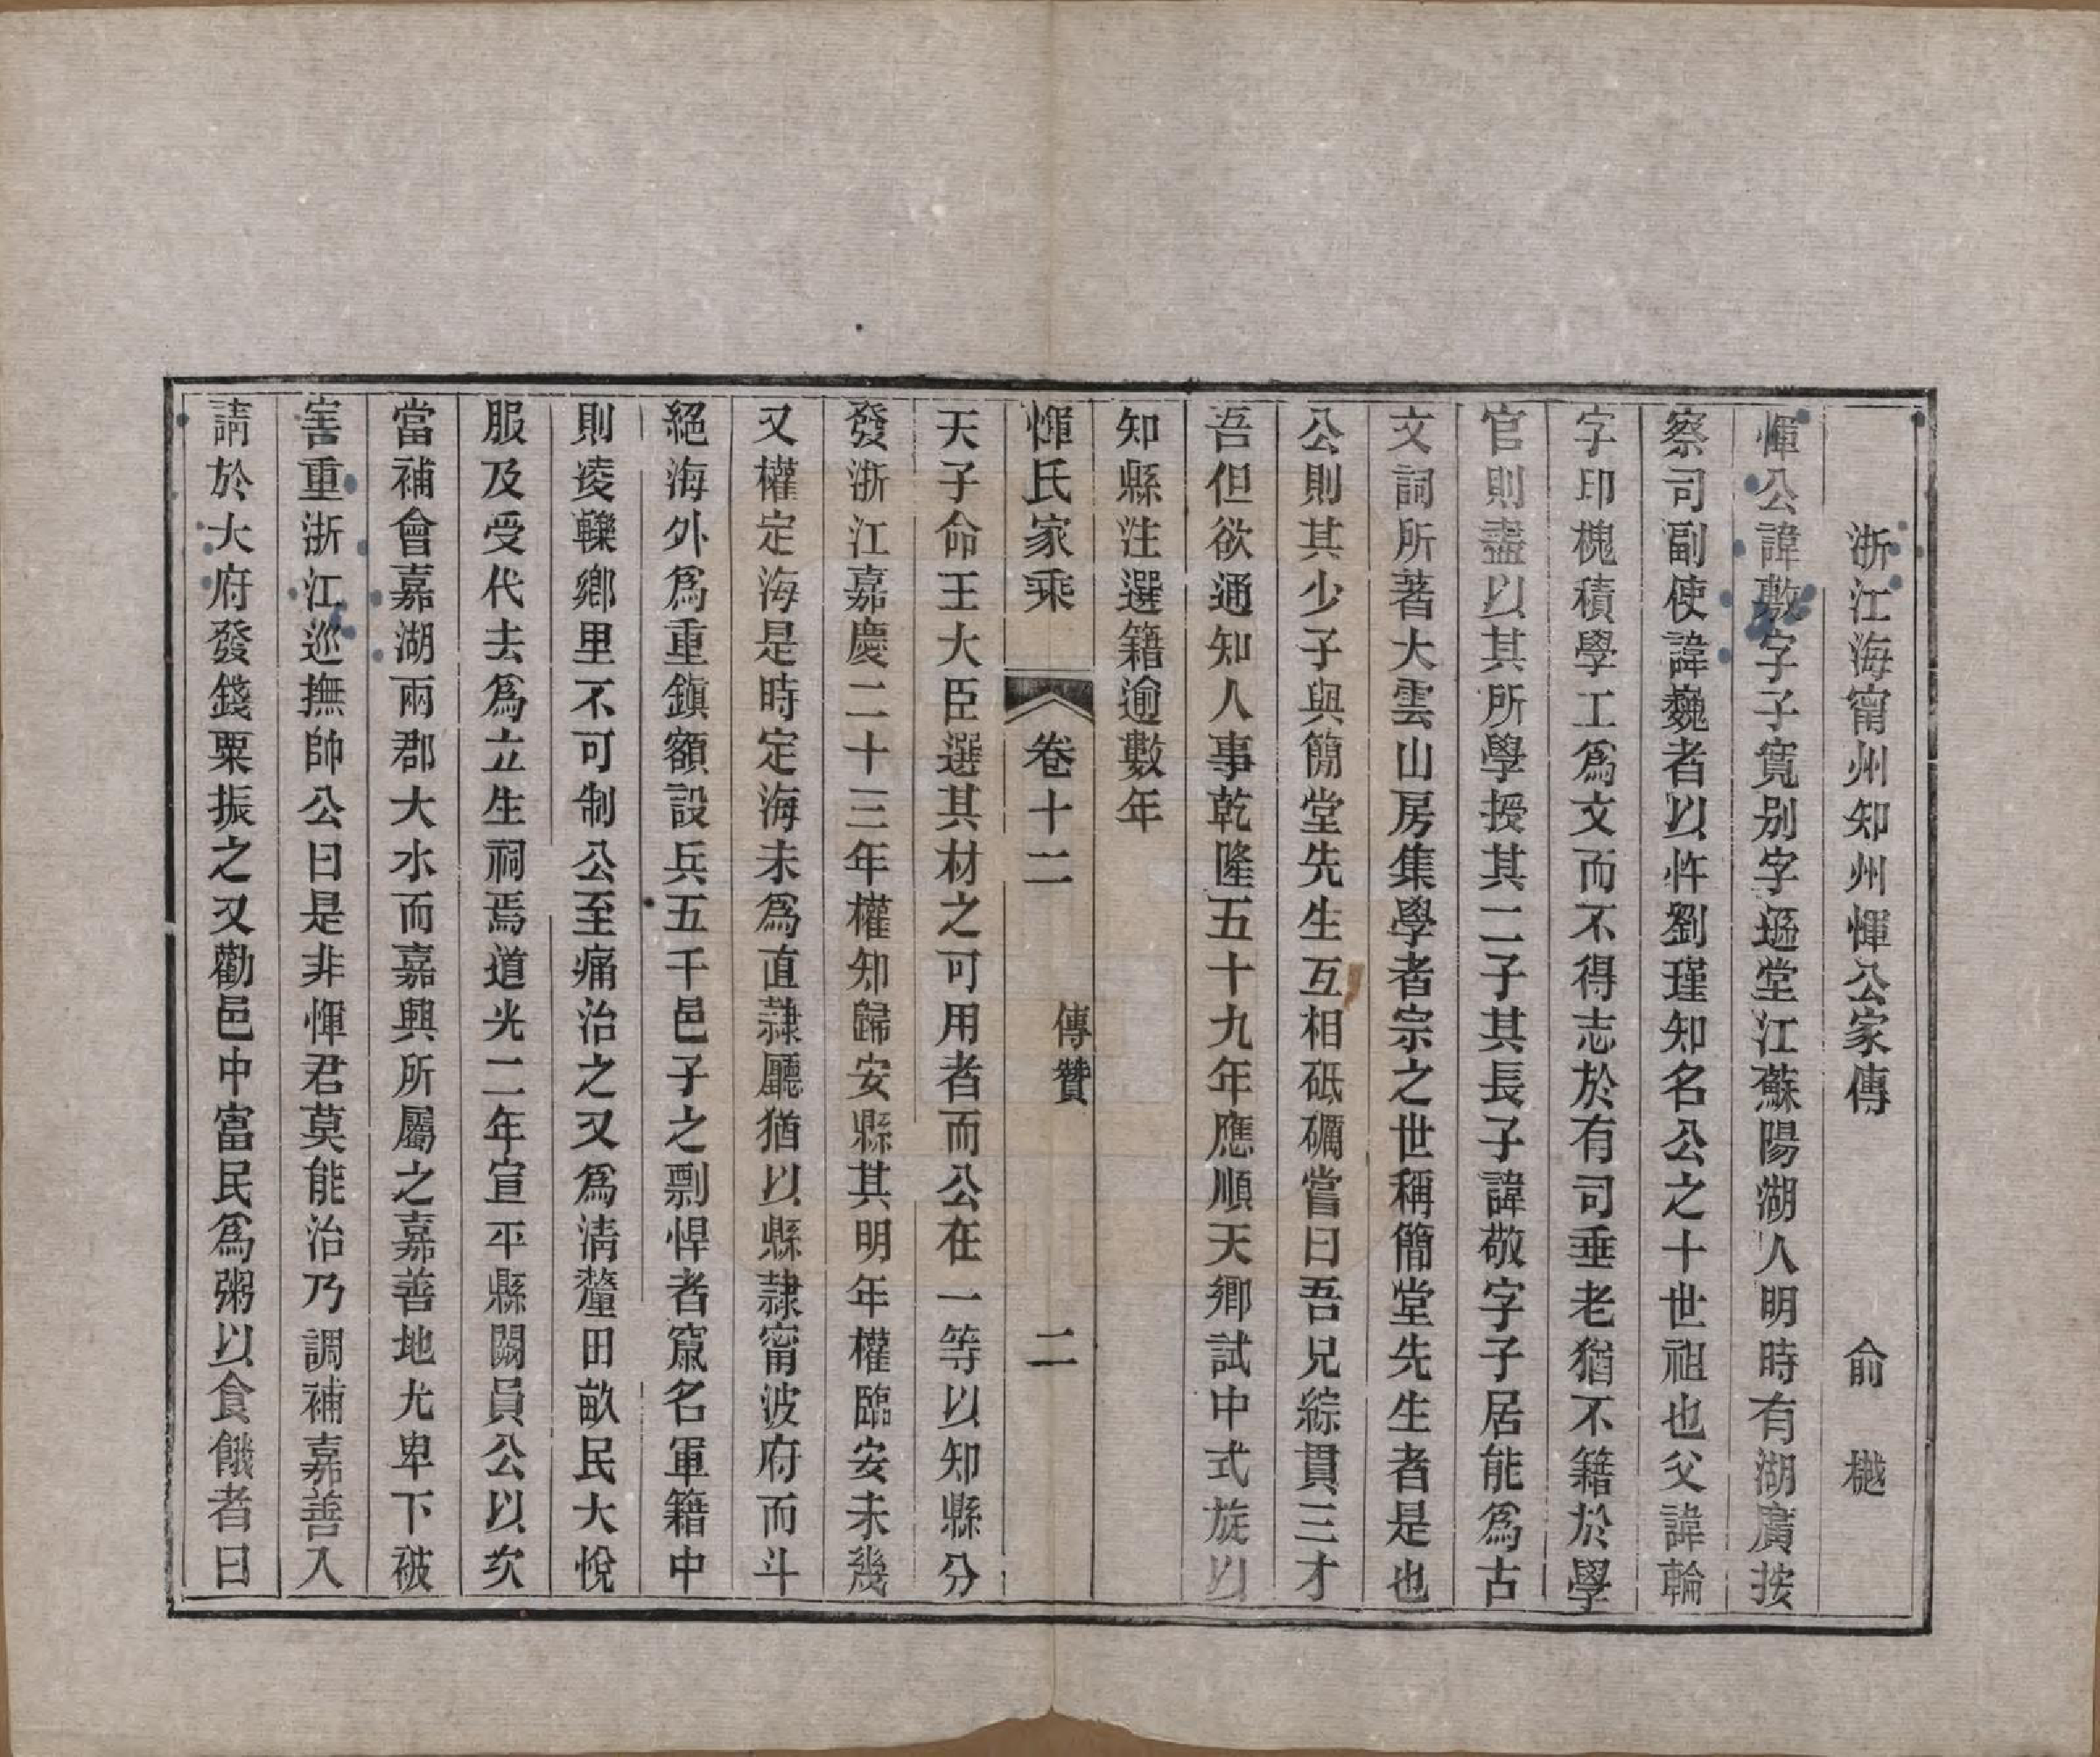 浙江海甯州知州惲公家傳　俞樾
惲公諱敷字子寬别字遜堂江蘇陽湖人明時有湖廣按
察司副使諱巍者以忤劉瑾知名公之十世祖也父諱輪
字印槐積學工爲文而不得志於有司垂老猶不籍於學
官則盡以其所學授其二子其長子諱敬字子居能爲古
文詞所著大雲山房集學者宗之世稱簡堂先生者是也
公則其少子與簡堂先生互相砥礪嘗曰吾兄綜貫三才
吾但欲通知人事乾隆五十九年應順天鄉試中式旋以
知縣注選籍逾數年
惲氏家乘　卷十二　傳贊　二
天子命王大臣選其材之可用者而公在一等以知縣分
發浙江嘉慶二十三年權知歸安縣其明年權臨安未幾
又權定海是時定海未爲直隷廳猶以縣隷甯波府而斗
絕海外爲重鎭額設兵五千邑子之剽悍者竄名軍籍中
則凌轢鄉里不可制公至痛治之又爲淸釐田畝民大悅
服及受代去爲立生祠焉道光二年宣平縣闕員公以次
當補會嘉湖兩郡大水而嘉興所屬之嘉善地尤卑下被
害重浙江巡撫帥公曰是非惲君莫能治乃調補嘉善入
請於大府發錢粟振之又勸邑中富民爲粥以食餓者曰